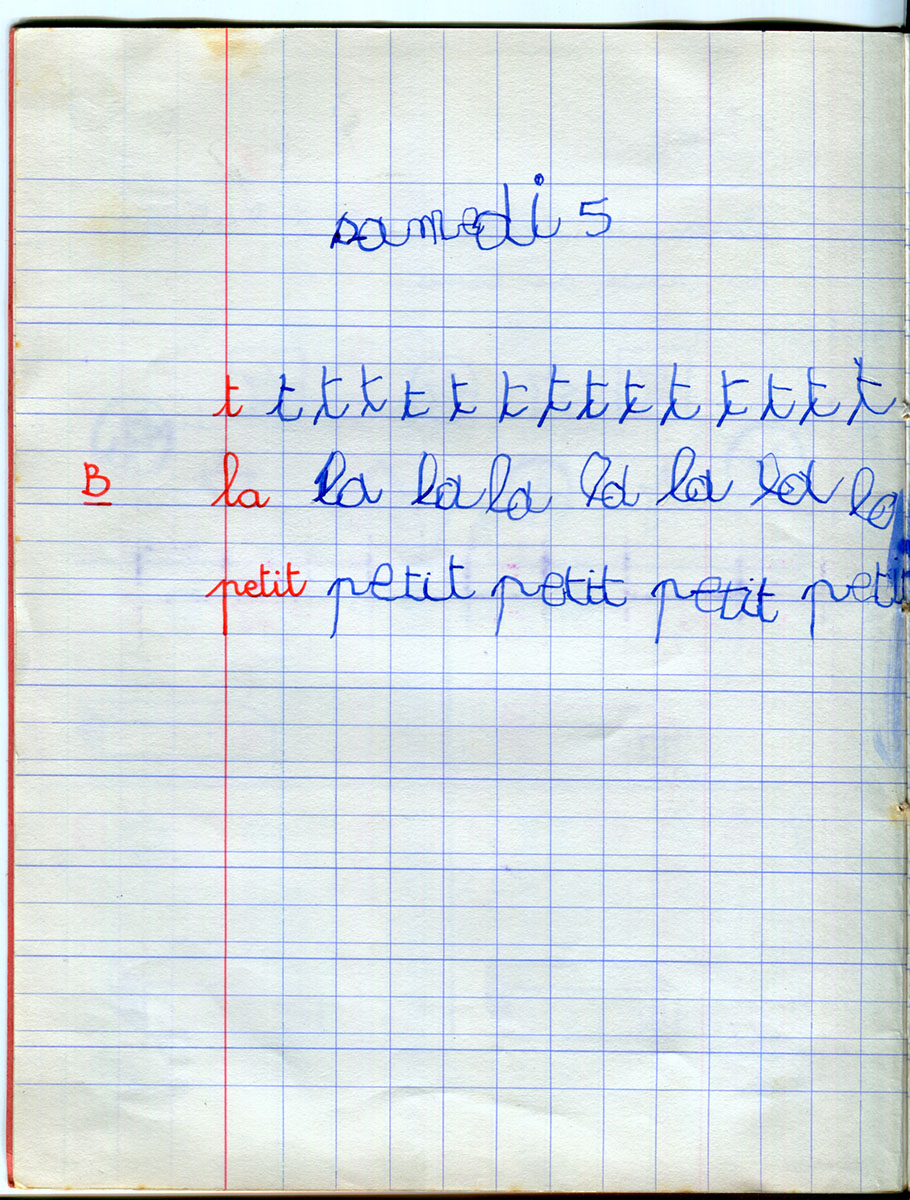 samedi 5
t t t t t t t t t t t t t t t
B la la la la la la la la
petit petit petit petit petit